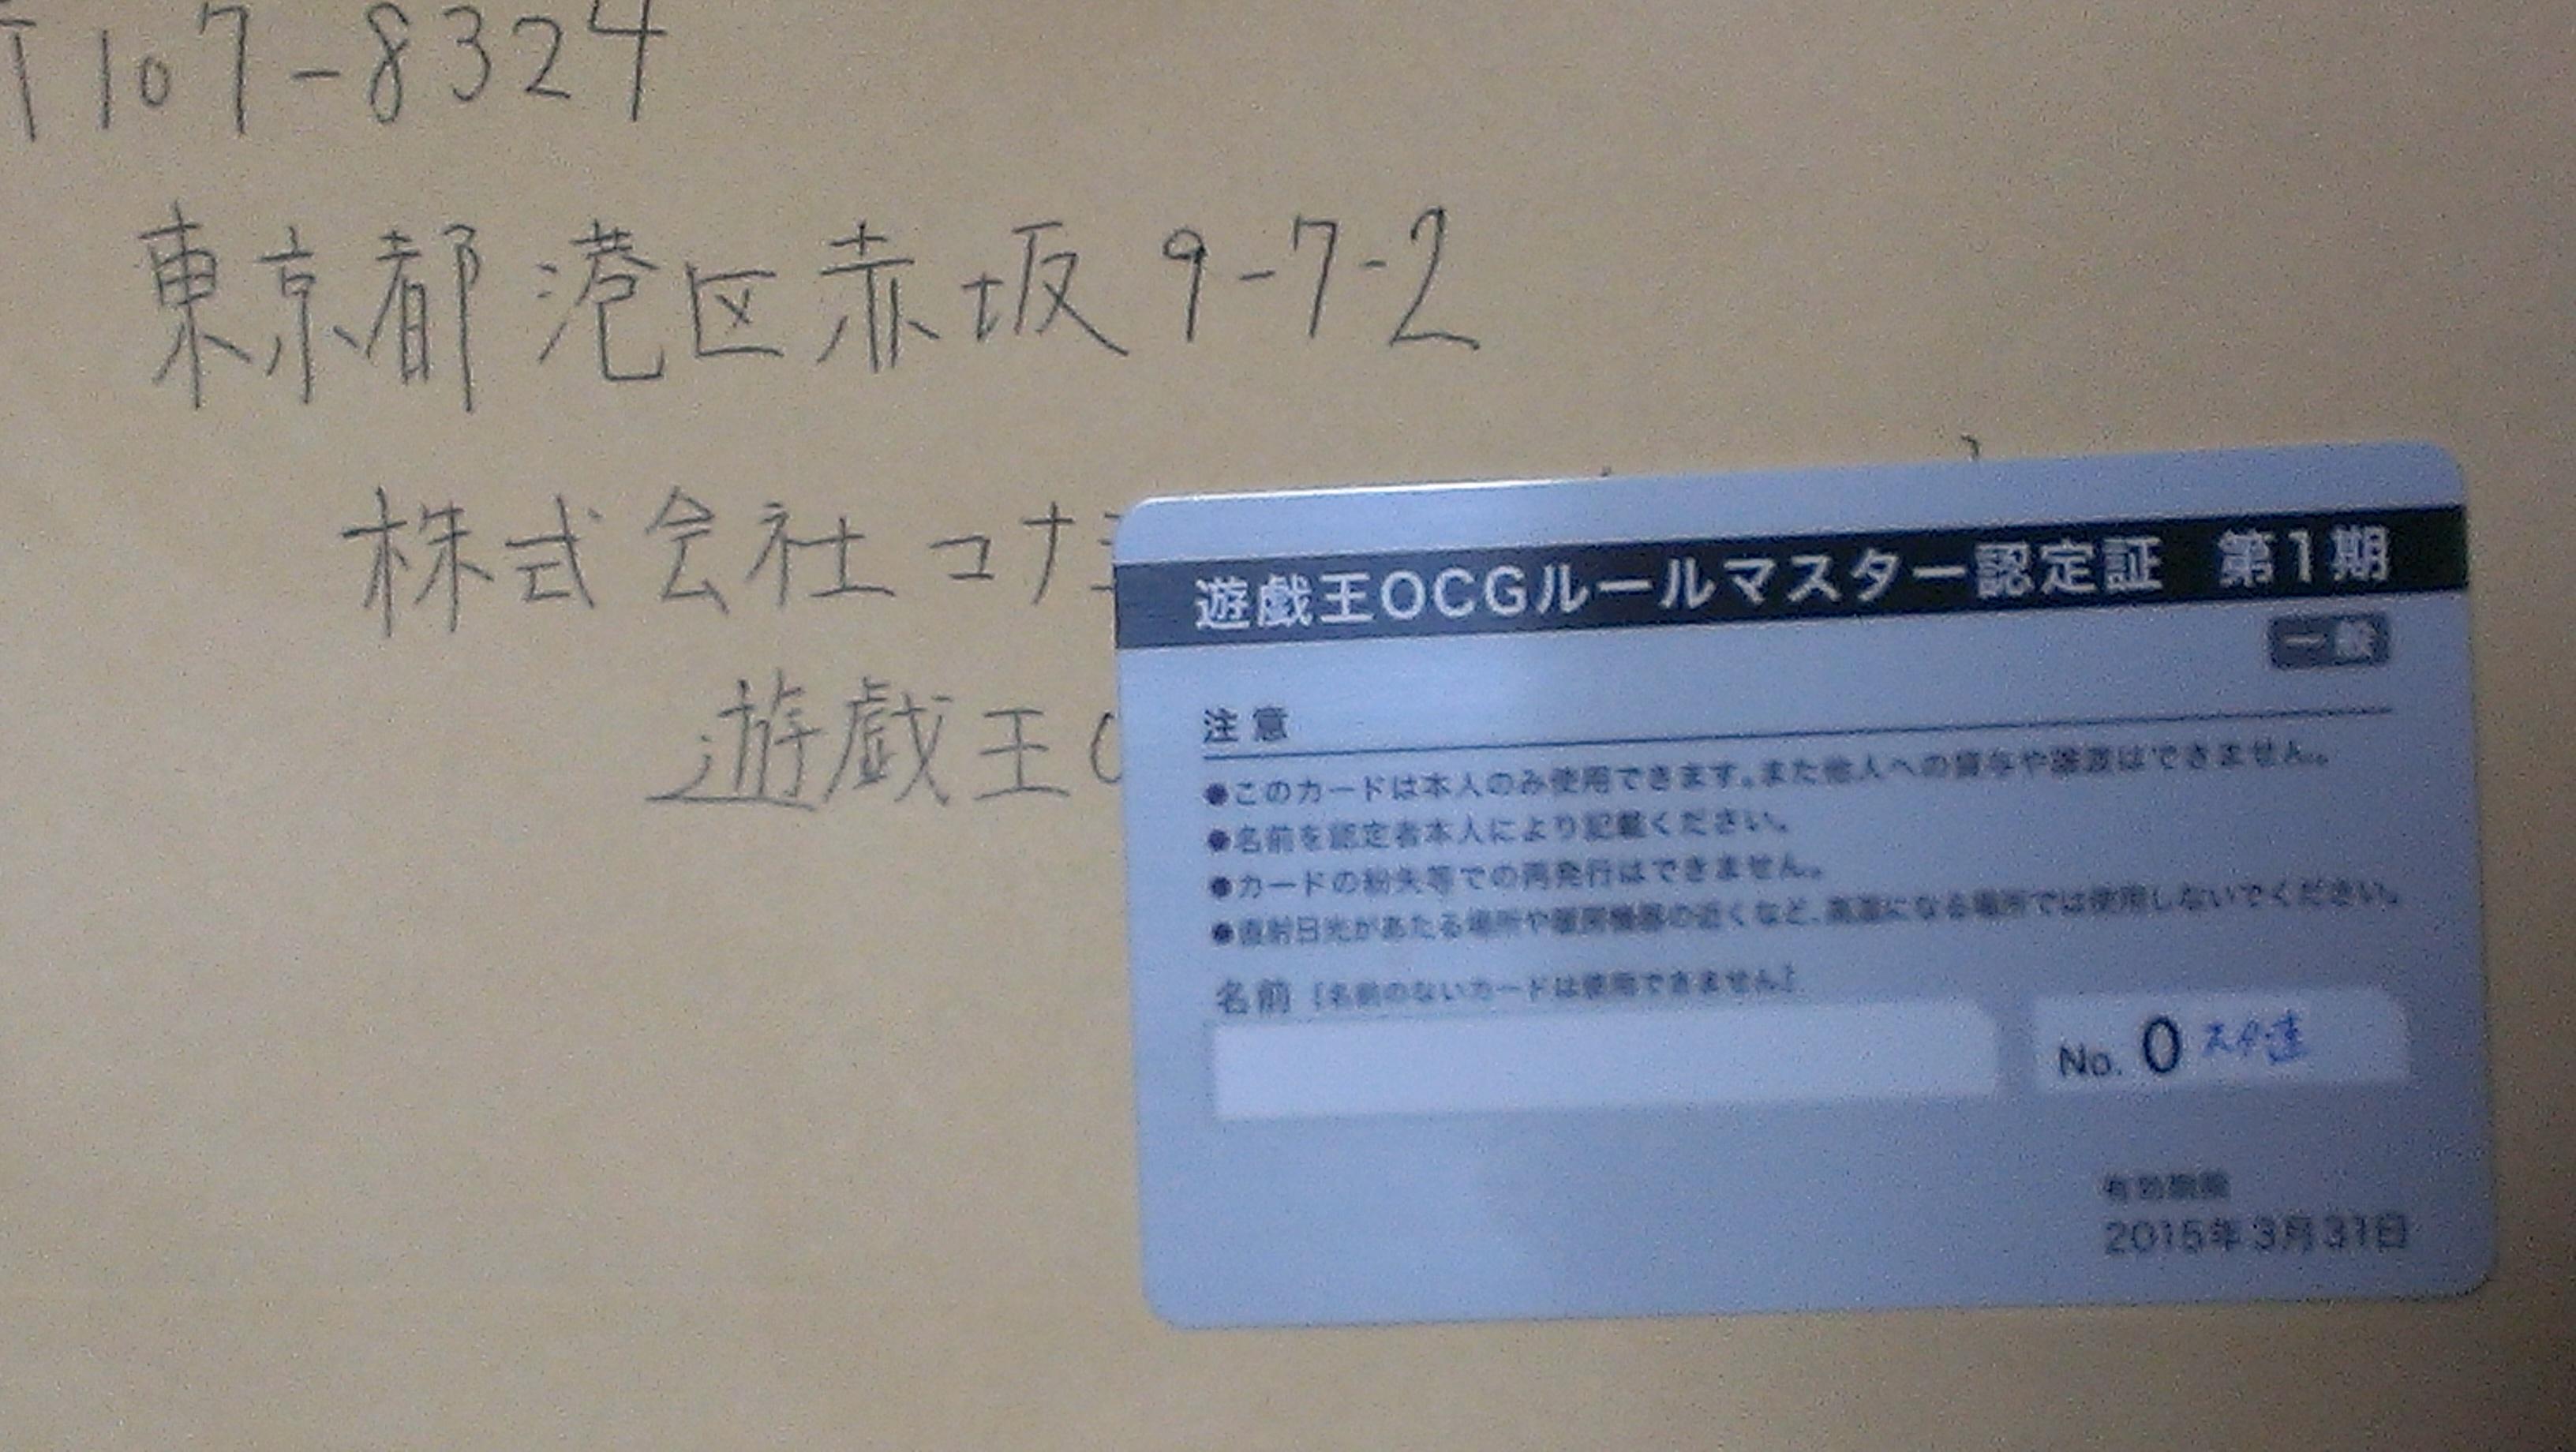 〒107-8324
東京都港区赤坂9-7-2
株式会社コナミ
遊戯王OC
遊戯王OCGルールマスター認定証 第1期
一般
注意
●このカードは本人のみ使用できます。また他人への貸与や譲渡はできません。
●名前を認定者本人により記載ください。
●カードの紛失等での再発行はできません。
●直射日光があたる場所や暖房機器の近くなど、高温になる場所では使用しないでください。
名前 [名前のないカードは使用できません]
No. 0
有効期限
2015年3月31日